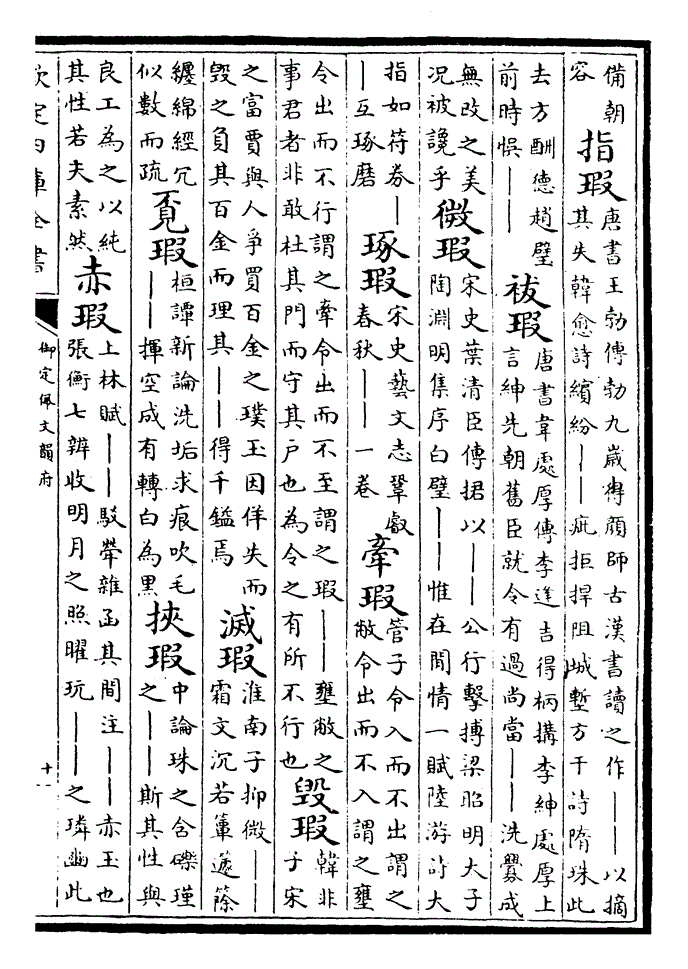 備朝
容
指瑕
唐書王勃傳勃九歲得顏師古漢書讀之作——以摘
其失韓愈詩繽紛——疵拒捍阻城塹方干詩隋珠此
去方酬德趙璧
前時悞——
祓瑕
唐書韋處厚傳李逢吉得柄搆李紳處厚上
言紳先朝舊臣就令有過尚當——洗釁成
無改之美
況被讒乎
微瑕
宋史葉清臣傳捃以——公行擊搏梁昭明太子
陶淵明集序白璧——惟在閒情一賦陸游詩大
指如符券—
—互琢磨
琢瑕
宋史藝文志鞏叡
春秋——一卷
牽瑕
管子令入而不出謂之
敝令出而不入謂之壅
令出而不行謂之牽令出而不至謂之瑕——壅敝之
事君者非敢杜其門而守其户也為令之有所不行也
毀瑕
韓非
子宋
之富賈與人爭買百金之璞玉因佯失而
毀之負其百金而理其——得千鎰焉
滅瑕
淮南子抑微——
霜文沉若簟籧篨
纏綿經冗
似數而疏
覔瑕
桓譚新論洗垢求痕吹毛
——揮空成有轉白為黑
挾瑕
中論珠之含礫瑾
之——斯其性與
良工為之以純
其性若夫素然
赤瑕
上林賦——駁犖雜臿其間注——赤玉也
張衡七辨收明月之照曜玩——之璘豳此
欽定四庫全書
御定佩文韻府
十一